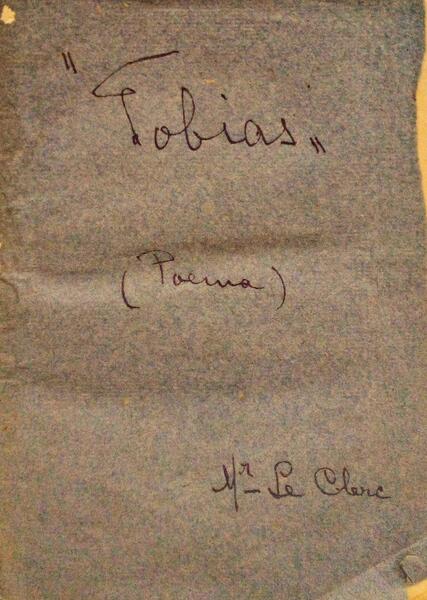 "Tobias"
(Poema)
Mr Le Clerc